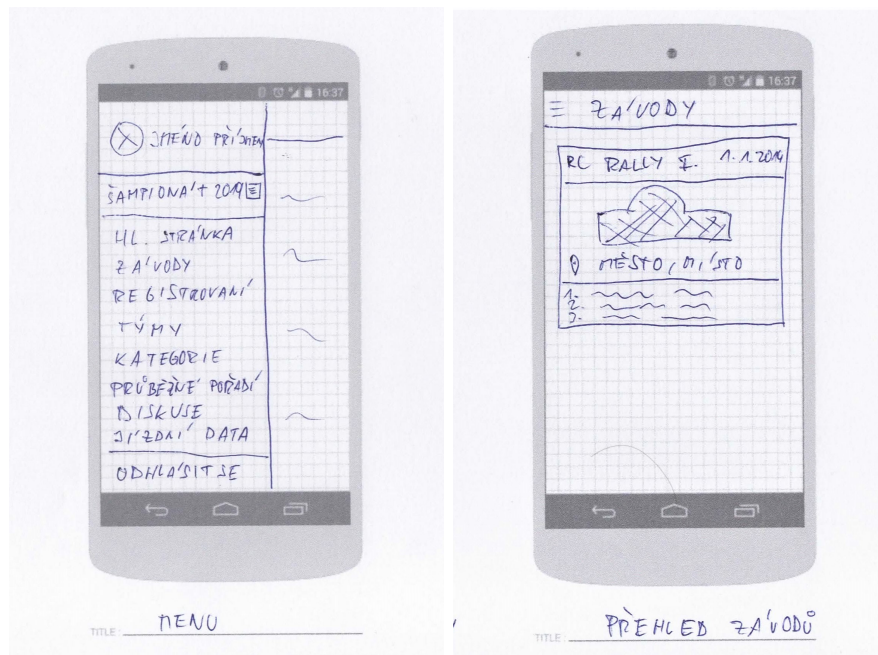 16:37
JMÉNO PŘÍJMEN
ŠAMPIONÁT 2014
HL. STRÁNKA
ZÁVODY
REGISTROVANÍ
TÝMY
KATEGORIE
PRŮBĚŽNÉ POŘADÍ
DISKUSE
JÍZDNÍ DATA
ODHLÁSIT SE
TITLE: MENU
16:37
ZÁVODY
RC RALLY I. 1.1.2014
MĚSTO, MÍSTO
1.
2.
3.
TITLE: PŘEHLED ZÁVODŮ